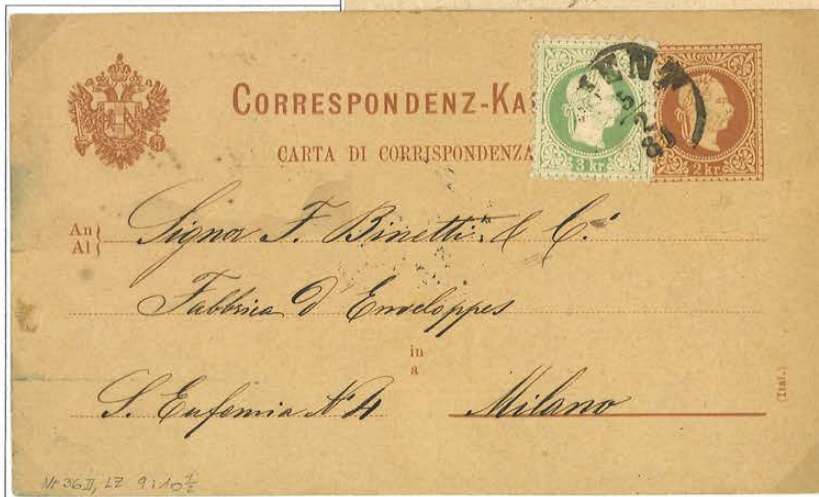 CORRESPONDENZ-KA
CARTA DI CORRISPONDENZA
3 kr.
2 kr.
5/2
An
Al
Signor F. Binetti & C.
Fabbrica d'Enveloppes
in
a
S. Eufemia N° 4 Milano
(Ital.)
Nr 36 II, LZ 9 : 10 1/2